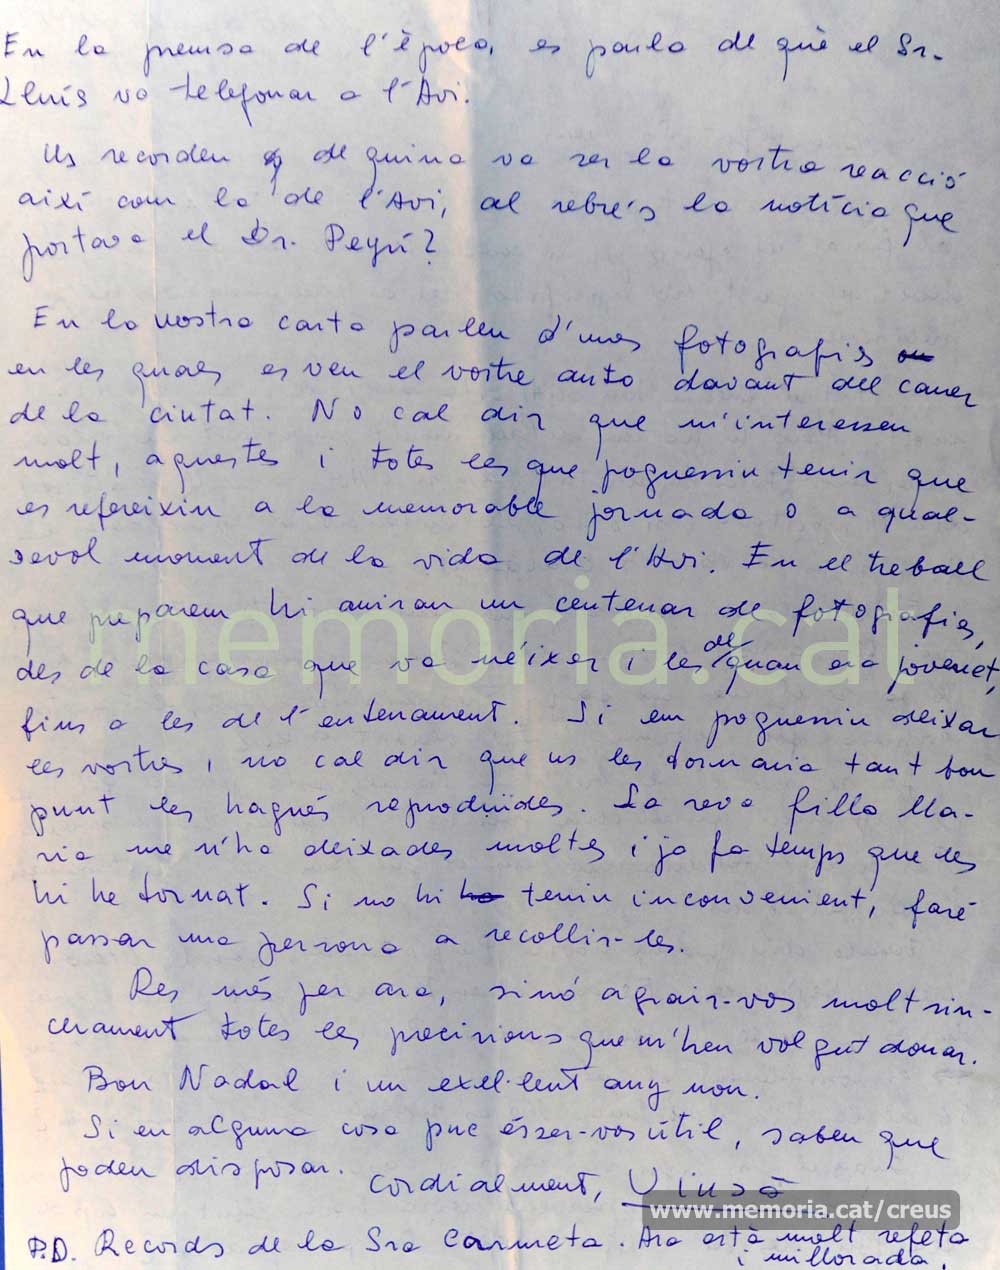 En la premsa de l'època, es parla de què el Sr.
Lluís va telefonar a l'Avi.
Us recorden de quina va ser la vostra reacció
així com la de l'Avi, al rebre's la notícia que
portava el Dr. Peyrí?
En la vostra carta parlen d'unes fotografies
en les quals es veu el vostre auto davant del carrer
de la ciutat. No cal dir que m'interessen
molt, aquestes i totes les que poguessin tenir que
es refereixin a la memorable jornada o a qual-
sevol moment de la vida de l'Avi. En el treball
que preparem hi aniran un centenar de fotografies,
des de la casa que va néixer i les de quan era jovenet,
fins a les de l'enterrament. Si em poguessin deixar
les vostres, no cal dir que us les tornaria tant bon
punt les hagués reproduïdes. La seva filla Ma-
ria me n'ha deixades moltes i ja fa temps que les
hi he tornat. Si no hi tenen inconvenient, faré
passar una persona a recollir-les.
Res més per ara, sinó agrair-vos molt sin-
cerament totes les precisions que m'heu volgut donar.
Bon Nadal i un exel·lent any nou.
Si en alguna cosa puc ésser-vos útil, saben que
poden disposar.
Cordialment,
P.D. Records de la Sra Carmeta. Ara està molt refeta
i millorada.
memoria.cat
www.memoria.cat/creus